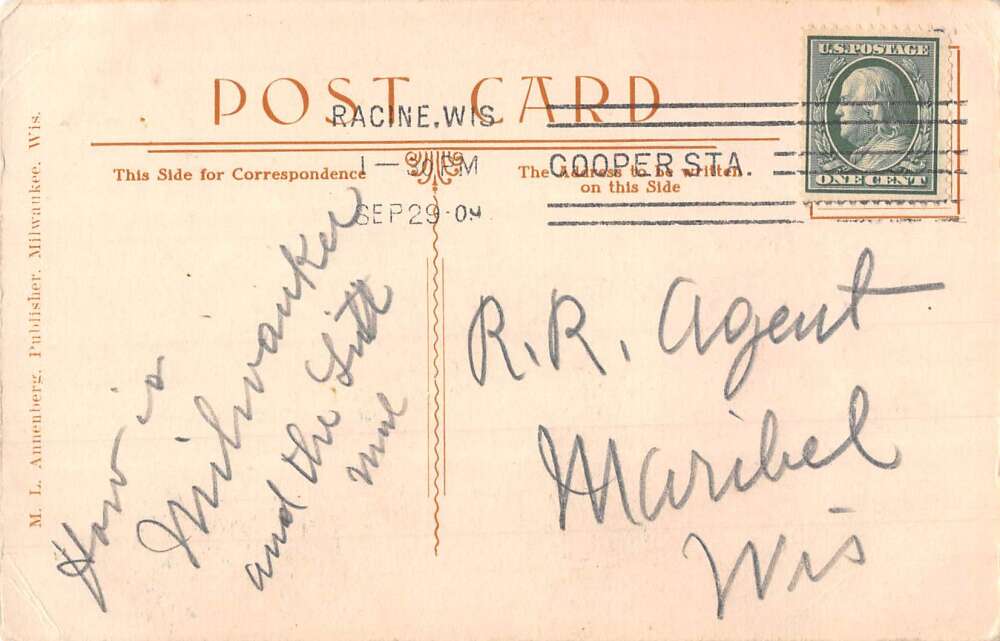 POST CARD
U.S. POSTAGE
ONE CENT
RACINE, WIS
1 — 30 PM
SEP 29 · 09
COOPER STA.
This Side for Correspondence
The Address to be written
on this Side
M. L. Annenberg, Publisher, Milwaukee, Wis.
How is
Milwaukee
and the
R.R. Agent
Maribel
Wis